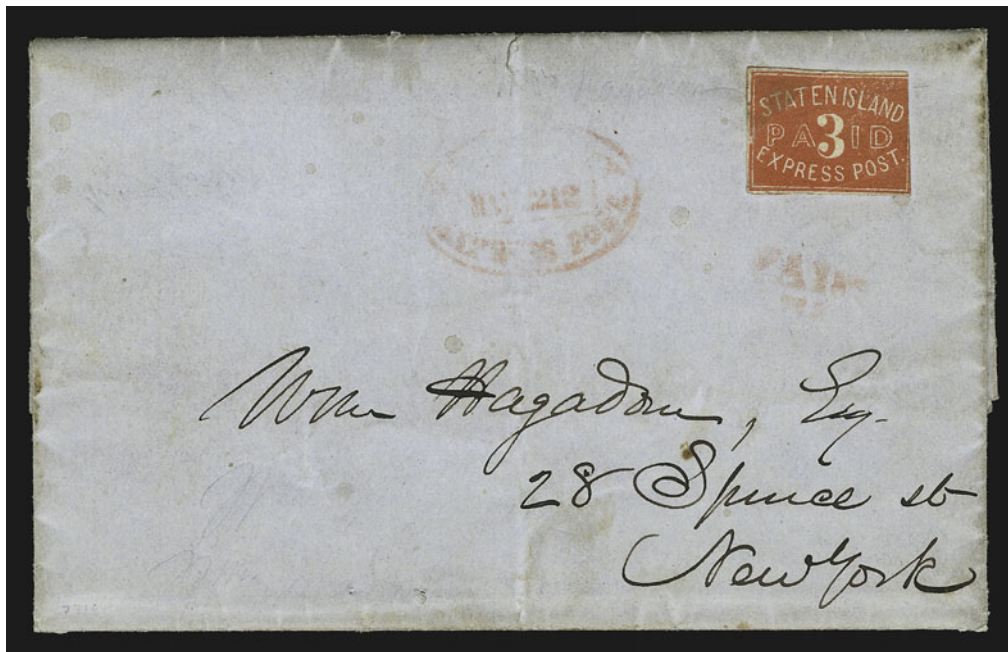 STATEN ISLAND
PA3ID
EXPRESS POST.
PAID
Wm Hagadorn, Esq.
28 Spruce st
New York